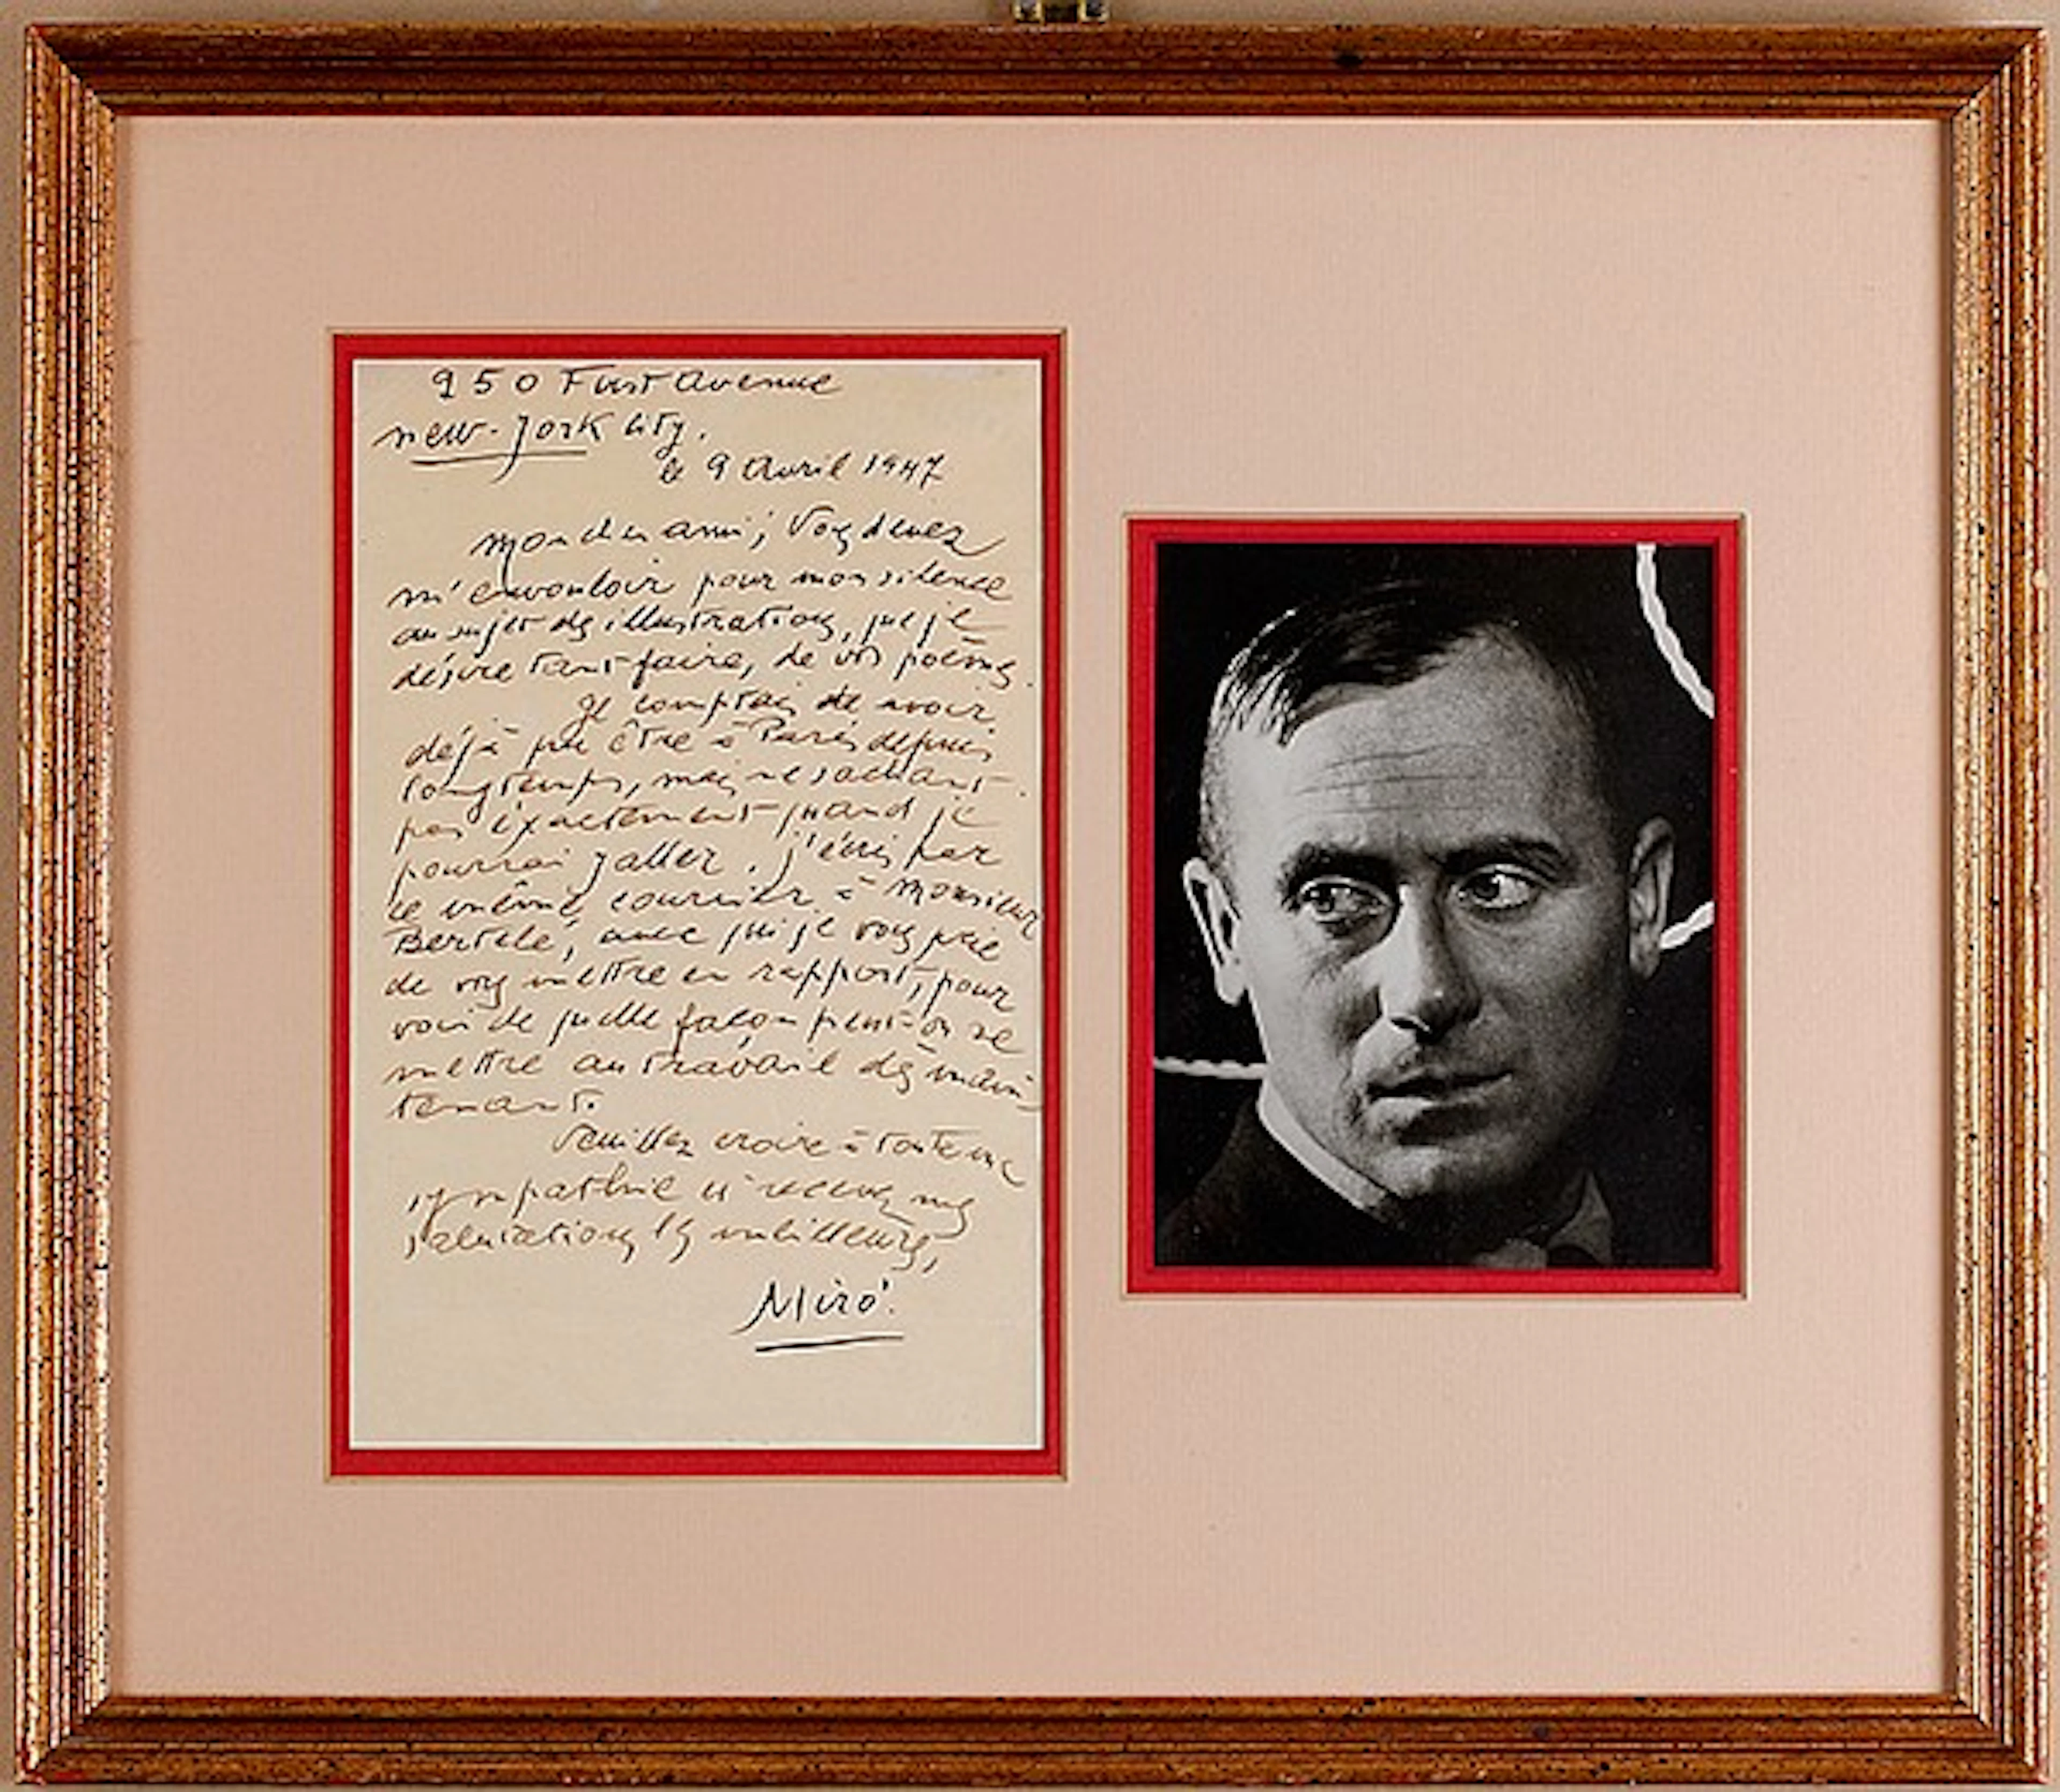 950 First Avenue
New-York City.
le 9 Avril 1947
Mon cher ami; Vous devez
m'en vouloir pour mon silence
au sujet des illustrations, que je
désire tant faire, de vos poèmes.
Je comptais de avoir
déjà pu être à Paris depuis
longtemps, mais ne sachant
pas exactement quand je
pourrai y aller, j'écris par
ce même courrier à Monsieur
Bertelé, avec qui je vous prie
de vous mettre en rapport, pour
voir de quelle façon peut-on se
mettre au travail dès main-
tenant.
Veuillez croire à toute ma
sympathie et recevez mes
salutations les meilleures,
Miró.